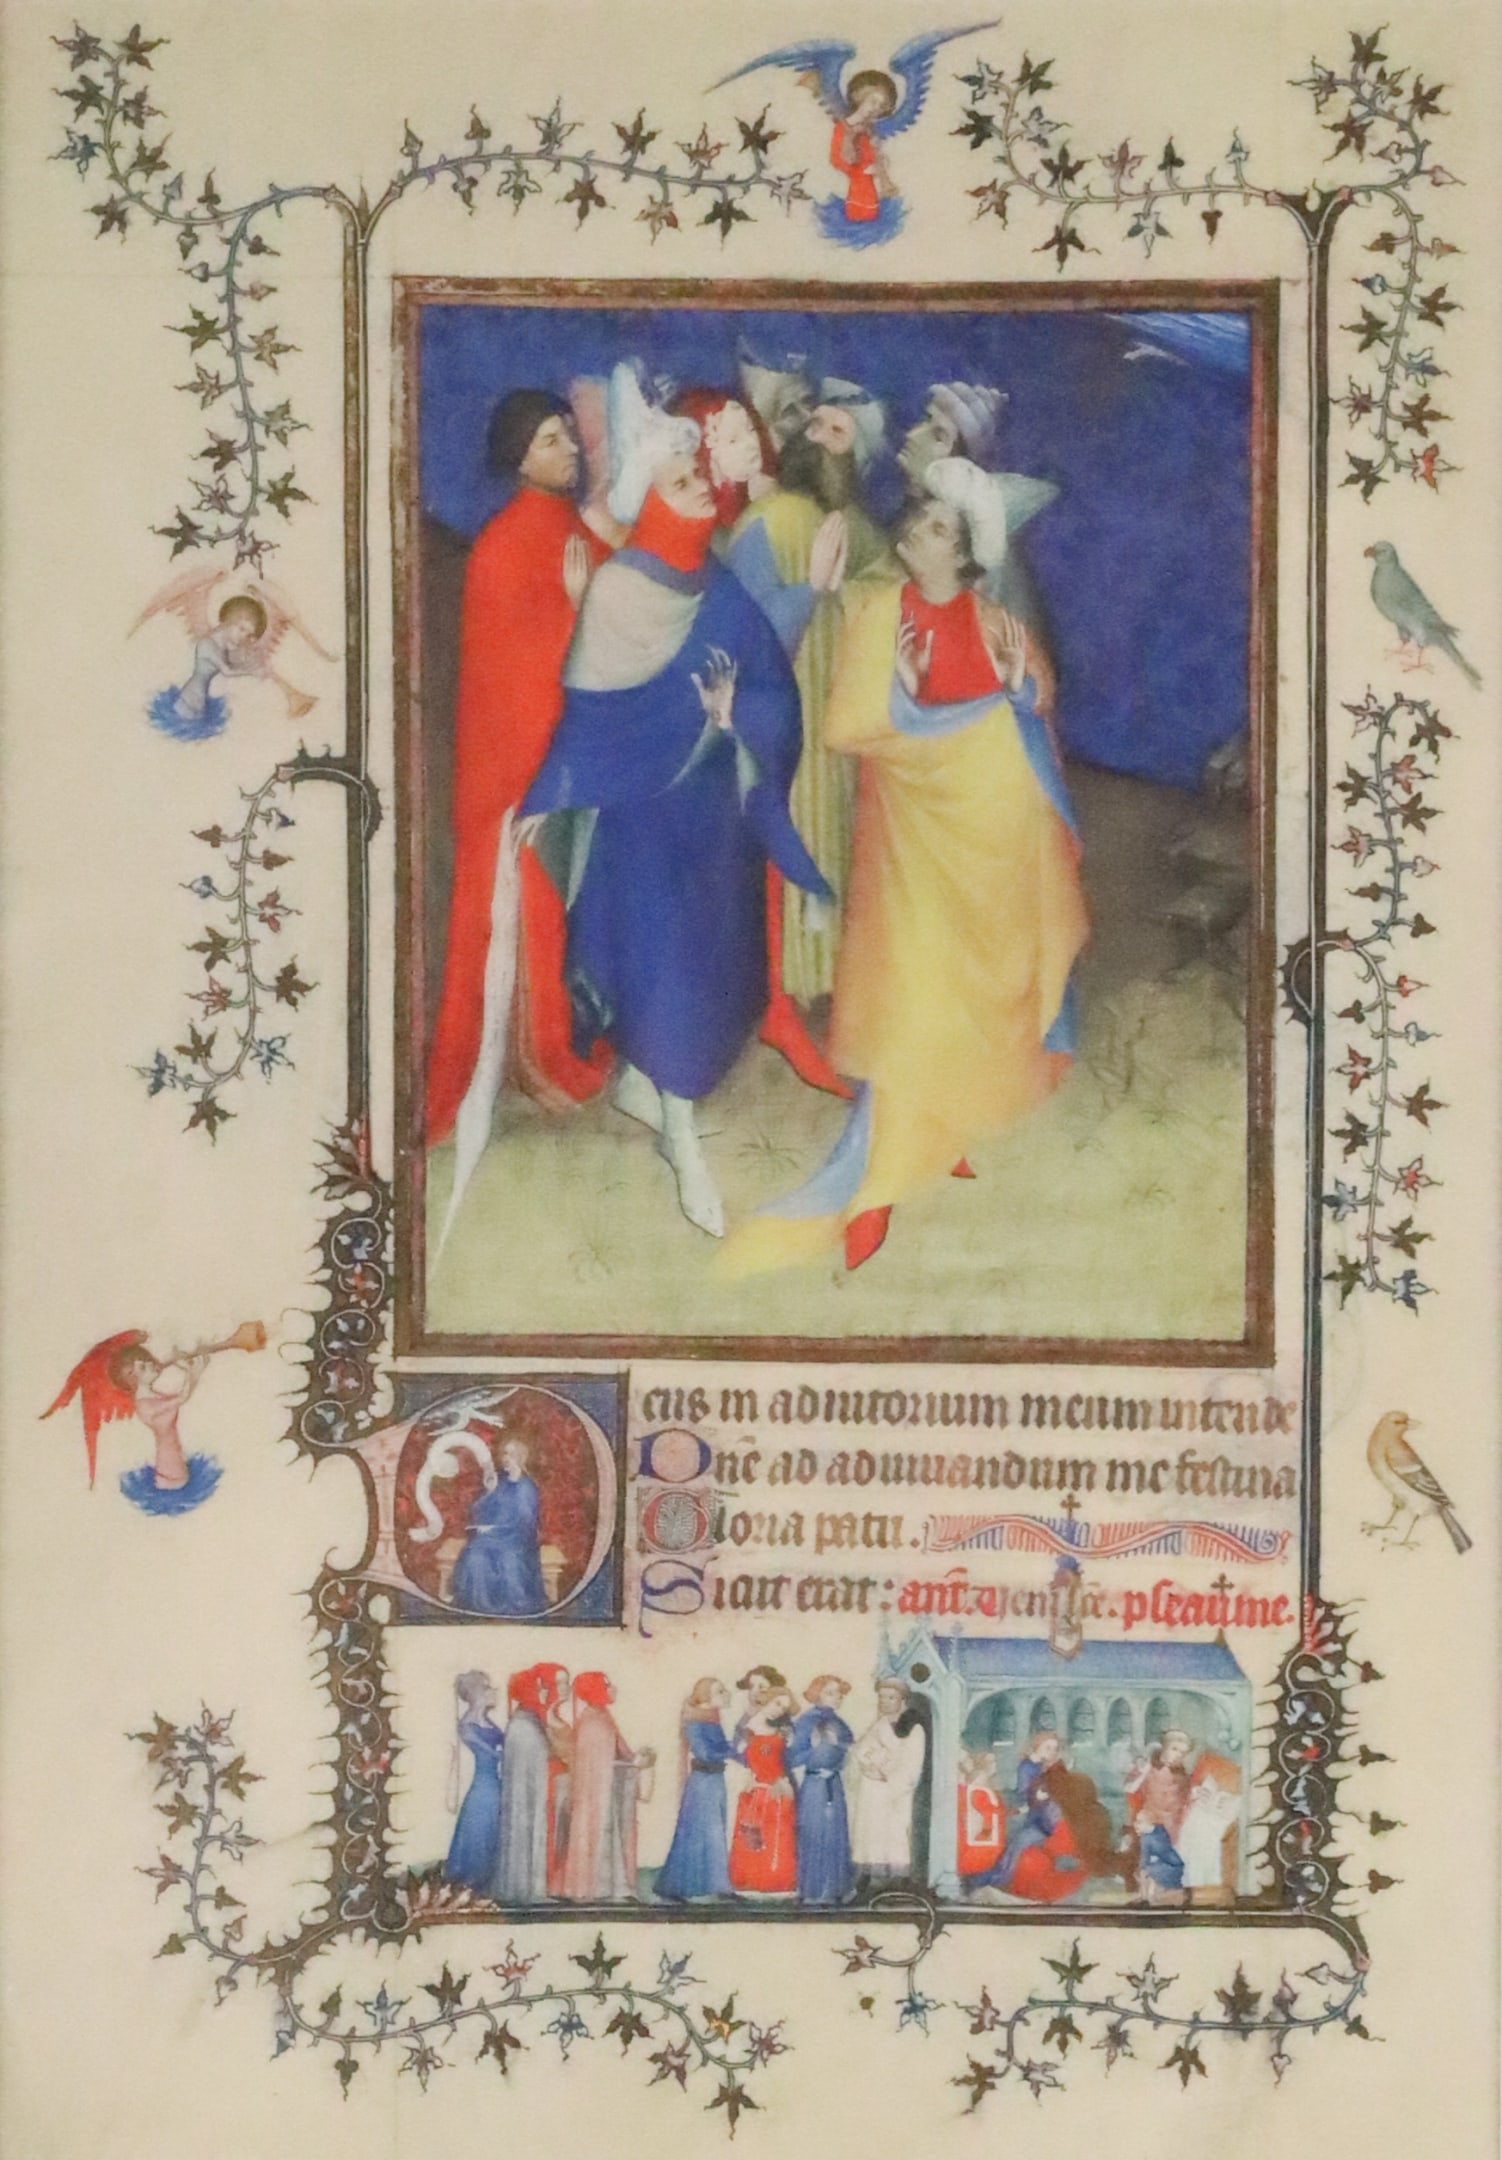 Deus in adiutorium meum intende
Dñe ad adiuuandum me festina
Gloria patri.
Sicut erat: añt. pseaume.